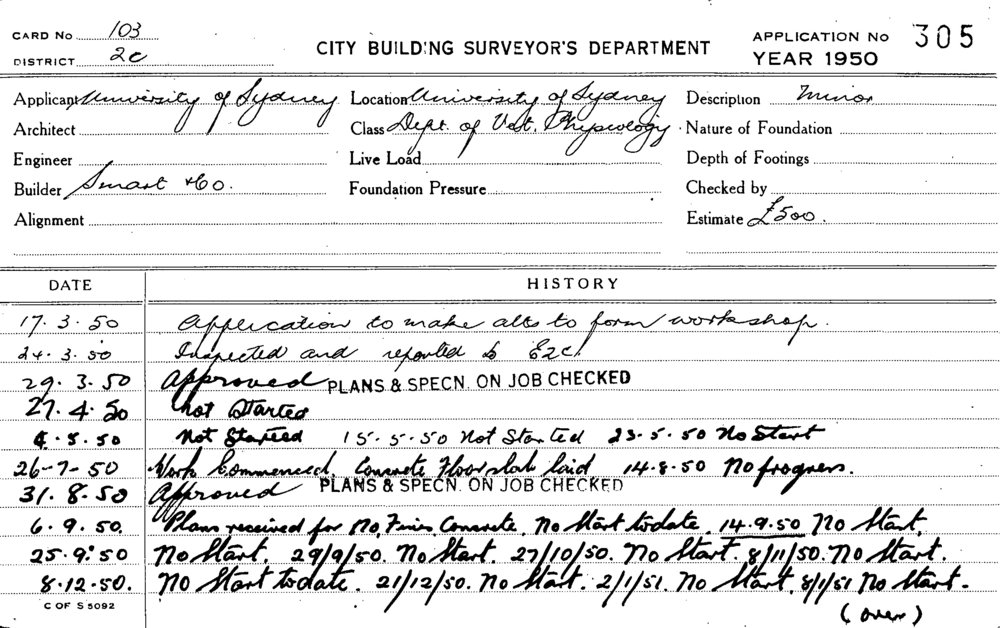 CARD No 103 CITY BUILDING SURVEYOR'S DEPARTMENT APPLICATION No 305
DISTRICT 2C YEAR 1950
Applicant University of Sydney Location University of Sydney Description Minor
Architect Class Dept. of Vet. Physeology Nature of Foundation
Engineer Live Load Depth of Footings
Builder Smart & Co. Foundation Pressure Checked by
Alignment Estimate £500.
DATE HISTORY
17. 3. 50 Application to make alts to form workshop.
24. 3. 50 Inspected and reported to E2C.
29. 3. 50 Approved PLANS & SPECN. ON JOB CHECKED
27. 4. 50 Not Started
4. 5. 50 Not Started 15-5-50 Not Started 23-5-50 No Start
26-7-50 Work Commenced. Concrete Floor slab laid 14.8.50 No progress.
31. 8. 50 Approved PLANS & SPECN. ON JOB CHECKED
6. 9. 50. Plans received for No Fines Concrete. No Start to date. 14.9.50 No Start.
25. 9. 50 No Start. 29/9/50. No Start. 27/10/50. No Start. 8/11/50. No Start.
8.12.50. No Start to date. 21/12/50. No Start. 2/1/51. No Start. 8/1/51 No Start.
C OF S 5092
(over)